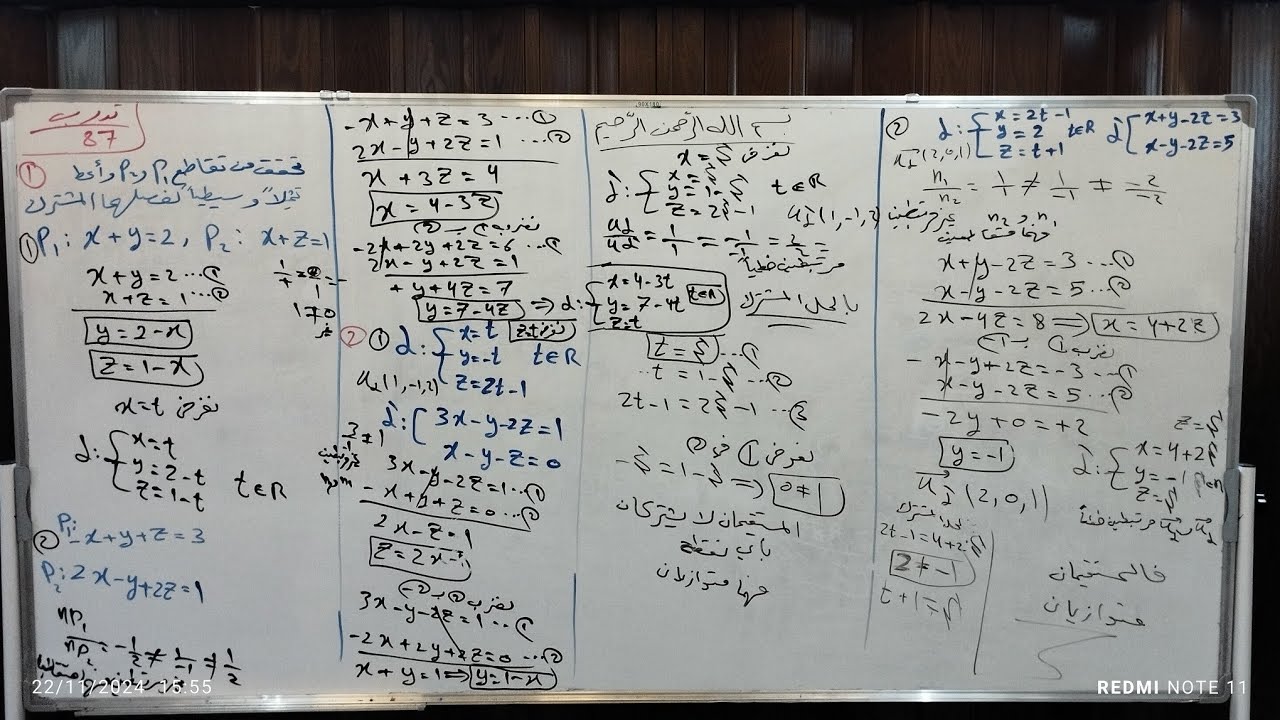 تدرب
37
① تحقق من تقاطع P₁ و P₂ وأعط
تمثيلاً وسيطياً لفصلهما المشترك
① P₁: x+y=2, P₂: x+z=1
x+y=2 ...①
x+z=1 ...②
y=2-x
z=1-x
نفرض x=t
d: { x=t
y=2-t
z=1-t t∈R
② P₁: -x+y+z=3
P₂: 2x-y+2z=1
nP₁
nP₂ = -1/2 ≠ 1/-1 ≠ 1/2
-x+y+z=3 ...①
2x-y+2z=1 ...②
x+3z=4
x=4-3z
-2x+2y+2z=6 ...①
2x-y+2z=1
+y+4z=7
y=7-4z ⇒ d: { x=4-3t
y=7-4t t∈R
z=t
نفرض z=t
② ① d: { x=t
y=-t t∈R
z=2t-1
u_d(1,-1,2)
d': { 3x-y-2z=1
x-y-z=0
3/1 ≠
3x-y-2z=1 ...①
-x+y+z=0 ...②
2x-z=1
z=2x-1
3x-y-2z=1 ...①
-2x+2y+2z=0 ...②
x+y=1 ⇒ y=1-x
بسم الله الرحمن الرحيم
نفرض x=s
d': { x=s
y=1-s t∈R
z=2s-1
u_d'(1,-1,2)
u_d/u_d' = 1/1 = -1/-1 = 2/2 =
مرتبطين خطياً
بالحل المشترك
t=s ...①
-t=1-s ...②
2t-1=2s-1 ...③
نعوض ① في ②
-s=1-s ⇒ 0≠1
المستقيمان لا يشتركان
بأي نقطة
فهما متوازيان
② d: { x=2t-1
y=2 t∈R
z=t+1
d' { x+y-2z=3
x-y-2z=5
u_d(2,0,1)
n₁/n₂ = 1/1 ≠ 1/-1 ≠ -2/-2
n₁ و n₂ غير مرتبطين
x+y-2z=3 ...①
x-y-2z=5 ...②
2x-4z=8 ⇒ x=4+2z
نضرب ① ب -1
-x-y+2z=-3 ...①
x-y-2z=5 ...②
-2y+0=+2
y=-1
z=s
d': { x=4+2s
y=-1
z=s
u_d'(2,0,1)
مرتبطين خطياً
2t-1=4+2s
2≠-1
t+1=s
فالمستقيمان
متوازيان
22/11/2024 15:55
REDMI NOTE 11